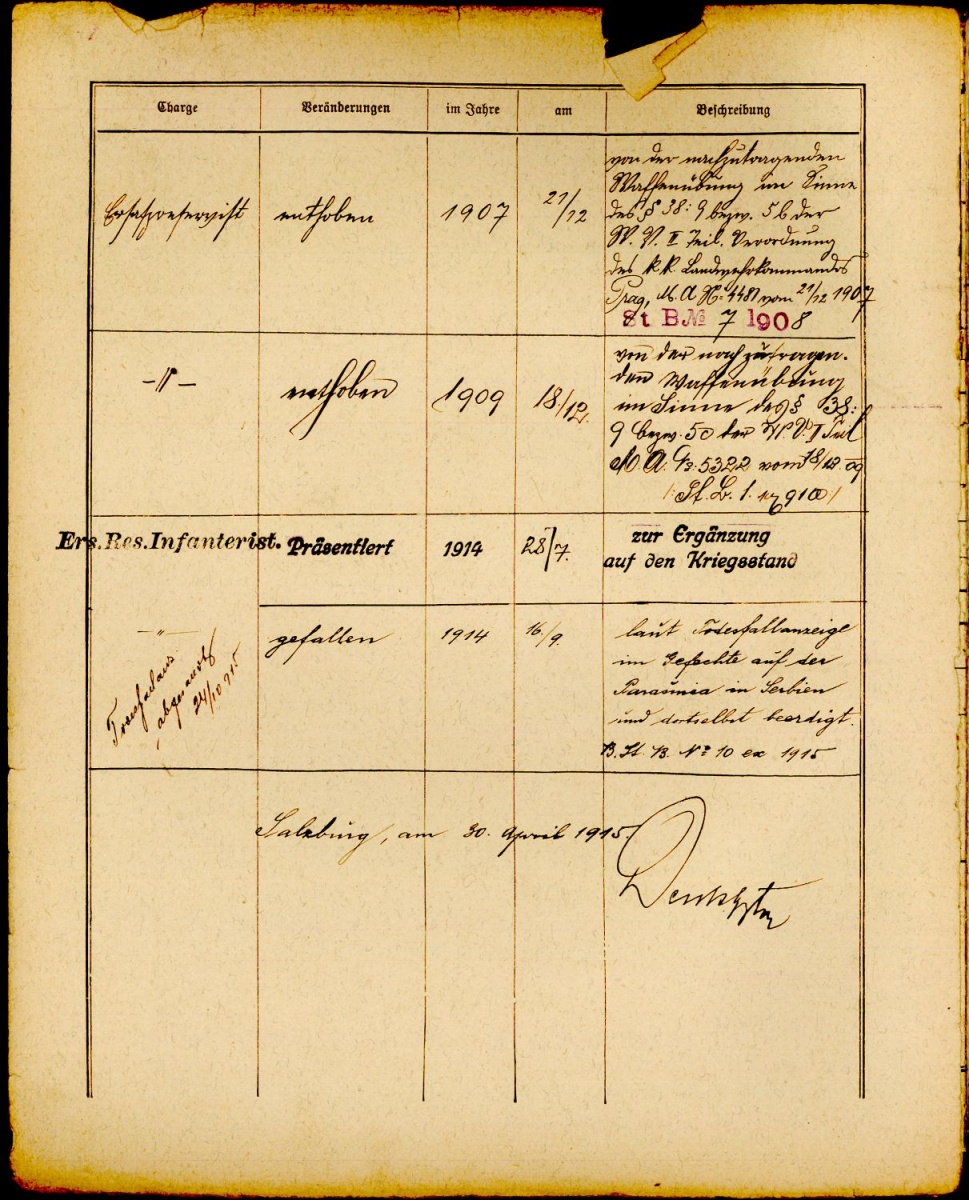 Charge Veränderungen im Jahre am Beschreibung
Ersatzreservist enthoben 1907 21/12
von der nachzutragenden
Waffenübung im Sinne
des § 38: 9 bezw. 56 der
W. V. II Teil. Verordnung
des k.k. Landwehrkommandos
Prag, M. A. No 4481 vom 21/12 1907
St. B.No 7 1908
-"- enthoben 1909 18/12.
von der nachzutragen-
den Waffenübung
im Sinne des § 38:
9 bezw. 50 der W. V. I Teil
M. A. 5322 vom 18/12 09
St. B. 1
Ers. Res. Infanterist. Präsentiert 1914 28/7.
zur Ergänzung
auf den Kriegsstand
-"- gefallen 1914 16./9.
laut Todesfallanzeige
im Gefechte auf der
Parasnica in Serbien
und dortselbst beerdigt.
B. St. B. No 10 ex 1915
abgesandt
24/10 915
Salzburg, am 30. April 1915.